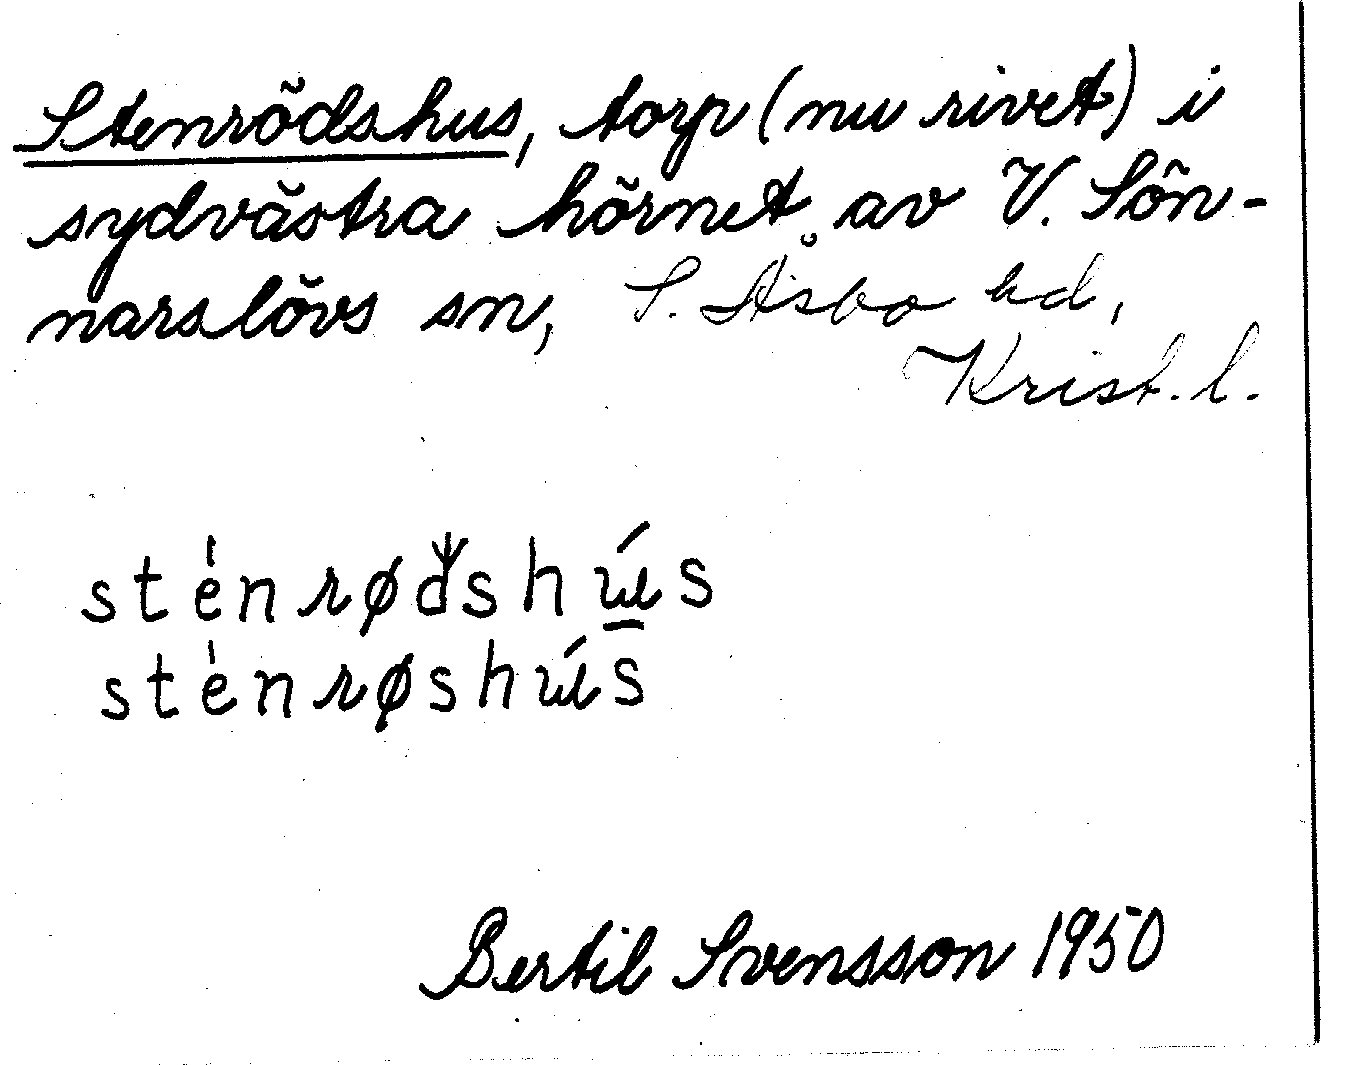 Stenrödshus, torp (nu rivet) i
sydvästra hörnet av V. Sön-
narslövs sn, S. Åsbo hd,
Krist. l.
sténrødshús
sténrøshús
Bertil Svensson 1950